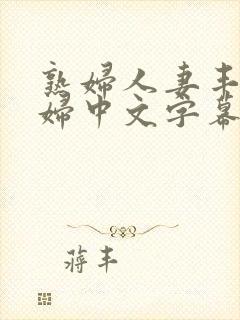 熟婦人妻丰
婦中文字幕
蒋丰